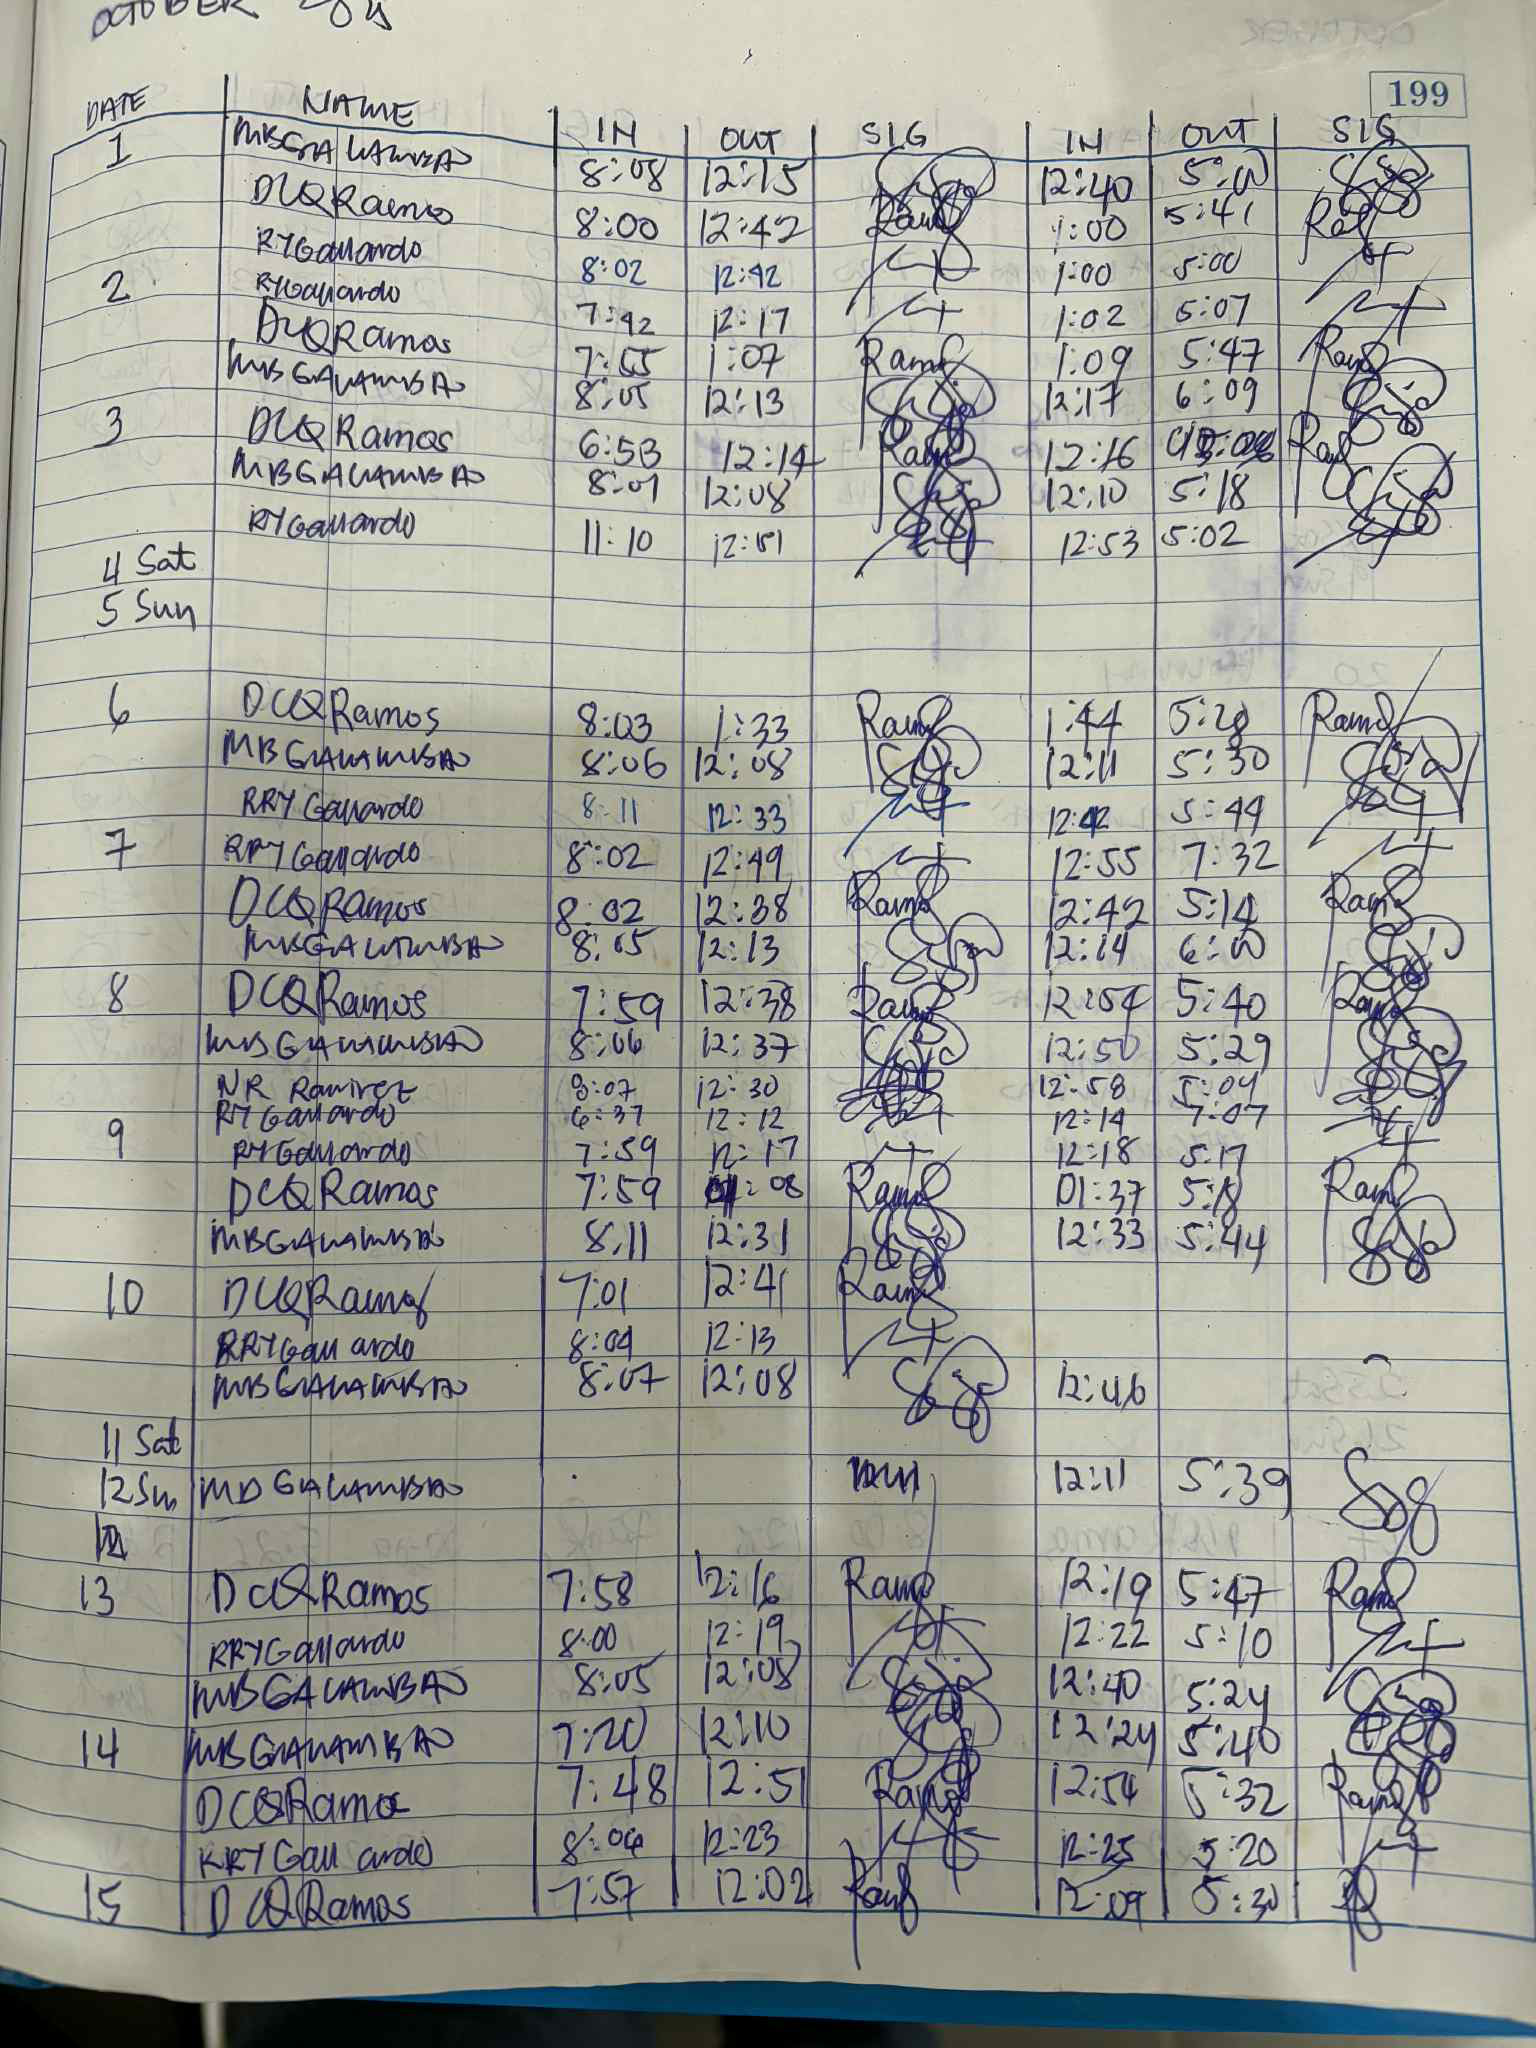 OCTOBER
199
DATE NAME IN OUT SIG IN OUT SIG
1 MBGALAMBAO 8:08 12:15 12:40 5:00
DCQRamos 8:00 12:42 1:00 5:41
RYGallardo 8:02 12:42 1:00 5:00
2 RYGallardo 7:42 12:17 1:02 5:07
DCQRamos 7:55 1:07 1:09 5:47
MBGALAMBAO 8:05 12:13 12:17 6:09
3 DCQRamos 6:53 12:14 12:16
MBGALAMBAO 8:01 12:08 12:10 5:18
RYGallardo 11:10 12:51 12:53 5:02
4 Sat
5 Sun
6 DCQRamos 8:03 1:33 1:44 5:28
MBGALAMBAO 8:06 12:08 12:11 5:30
RRYGallardo 8:11 12:33 12:42 5:44
7 RRYGallardo 8:02 12:49 12:55 7:32
DCQRamos 8:02 12:38 12:42 5:14
MBGALAMBAO 8:05 12:13 12:14 6:00
8 DCQRamos 7:59 12:38 12:54 5:40
MBGALAMBAO 8:06 12:37 12:50 5:29
NR Ramirez 8:07 12:30 12:58 5:04
RYGallardo 6:37 12:12 12:14 7:07
9 RYGallardo 7:59 12:17 12:18 5:17
DCQRamos 7:59 01:08 01:37 5:18
MBGALAMBAO 8:11 12:31 12:33 5:44
10 DCQRamos 7:01 12:41
RRYGallardo 8:04 12:13
MBGALAMBAO 8:07 12:08 12:46
11 Sat
12 Sun MBGALAMBAO 12:11 5:39
13 DCQRamos 7:58 12:16 12:19 5:47
RRYGallardo 8:00 12:19 12:22 5:10
MBGALAMBAO 8:05 12:08 12:40 5:24
14 MBGALAMBAO 7:20 12:10 12:24 5:40
DCQRamos 7:48 12:51 12:54 5:32
RRYGallardo 8:04 12:23 12:25 5:20
15 DCQRamos 7:57 12:02 12:09 5:30